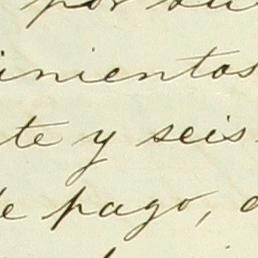 por su
inientos
te y seis
de pago,